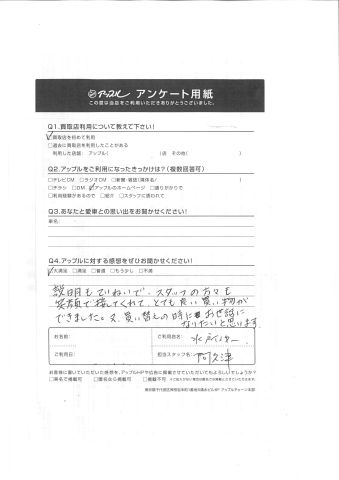 アップル アンケート用紙
この度は当店をご利用いただきありがとうございました。
Q1.買取店利用について教えて下さい!
☑買取店を初めて利用
□過去に買取店を利用したことがある
利用した店舗: アップル( )店 その他( )
Q2.アップルをご利用になったきっかけは?(複数回答可)
□テレビCM □ラジオCM □新聞・雑誌(媒体名/ )
□チラシ □DM ☑アップルのホームページ □通りがかりで
□利用経験があるので □紹介 □スタッフに誘われて
Q3.あなたと愛車との思い出をお聞かせください!
車名:
Q4.アップルに対する感想をぜひお聞かせください!
☑大満足 □満足 □普通 □もう少し □不満
説明もていねいで、スタッフの方々も
笑顔で接してくれて、とても良い買い物が
できました。又、買い替えの時にもお世話に
なりたいと思います。
お名前: ご利用店名: 水戸インター
ご利用日: 担当スタッフ名: 阿久津
お客様に書いていただいた感想を、アップルHPや広告に掲載させていただいてもよろしいでしょうか?
□実名で掲載可 □匿名なら掲載可 □掲載不可